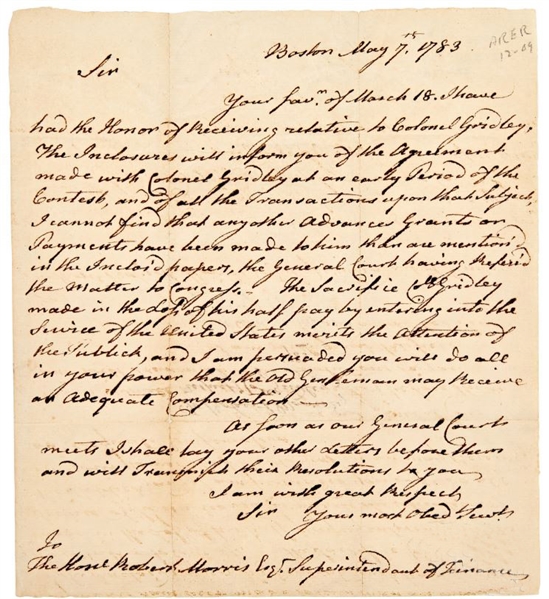 Boston May 7th. 1783.
ARER
12-09
Sir
Your favr. of March 18. I have
had the Honor of Receiving relative to Colonel Gridley,
The Inclosures will inform you of the Agreement
made with Colonel Gridley at an early Period of the
Contest, and of all the Transactions upon that Subject,
I cannot find that any other Advances Grants or
Payments have been made to him than are mention'd
in the Inclos'd papers, the General Court having Refer'd
the Matter to Congress. The Sacrifice Colo. Gridley
made in the Loss of his half pay by entering into the
Service of the United States merits the Attention of
the Publick, and I am persuaded you will do all
in your power that the Old Gentleman may Receive
an Adequate Compensation
As soon as our General Court
meets I shall lay your other Letters before them
and will Transmit their Resolutions to you
I am with great Respect
Sir Your most Obed Servt.
To
The Honl. Robert Morris Esqr. Superintendant of Finance